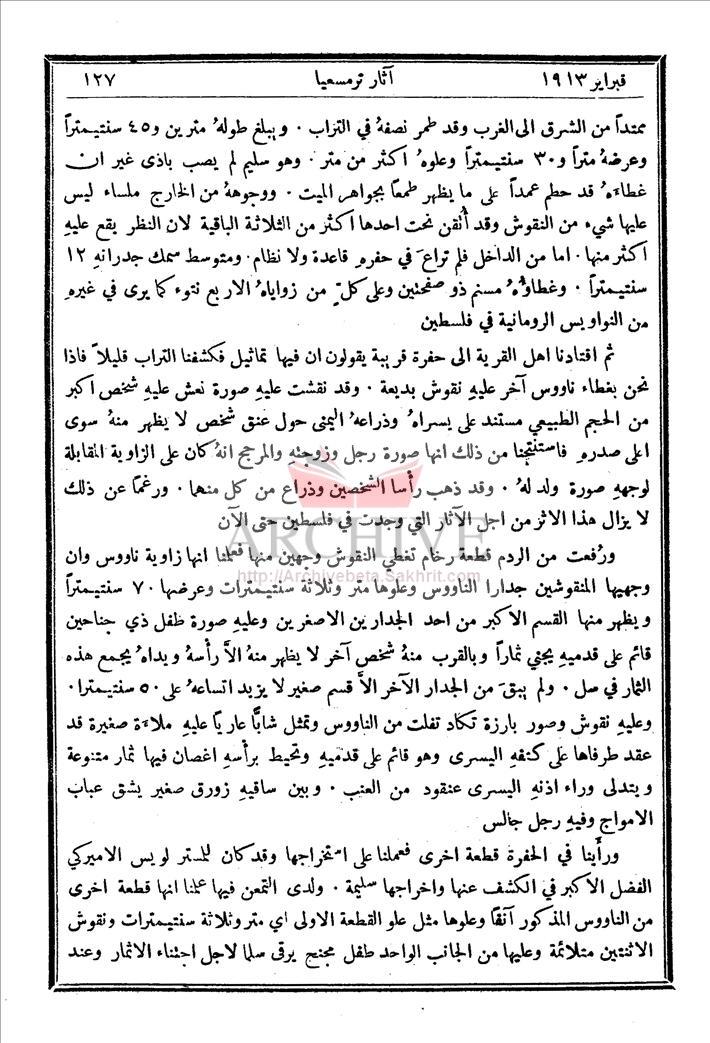 فبراير ١٩١٣ آثار ترمسعيا ١٢٧
ممتداً من الشرق الى الغرب وقد طمر نصفهُ في التراب . ويبلغ طولهُ مترين و٤٥ سنتيمتراً
وعرضهُ متراً و٣٠ سنتيمتراً وعلوهُ اكثر من متر . وهو سليم لم يصب باذى غير ان
غطاءَهُ قد حطم عمداً على ما يظهر طمعاً بجواهر الميت . ووجوههُ من الخارج ملساء ليس
عليها شيء من النقوش وقد أُتقن نحت احدها اكثر من الثلاثة الباقية لان النظر يقع عليهِ
اكثر منها . اما من الداخل فلم تراعَ في حفرهِ قاعدة ولا نظام . ومتوسط سمك جدرانهِ ١٢
سنتيمتراً . وغطاؤُهُ مسنم ذو صفحتين وعلى كلّ من زواياهُ الاربع نتوء كما يرى في غيرهِ
من النواويس الرومانية في فلسطين
ثم اقتادنا اهل القرية الى حفرة قريبة يقولون ان فيها تماثيل فكشفنا التراب قليلاً فاذا
نحن بغطاء ناووس آخر عليهِ نقوش بديعة . وقد نقشت عليهِ صورة نعش عليهِ شخص اكبر
من الحجم الطبيعي مستند على يسراهُ وذراعهُ اليمنى حول عنق شخص لا يظهر منهُ سوى
اعلى صدرهِ فاستنتجنا من ذلك انها صورة رجل وزوجتهِ والمرجح انهُ كان على الزاوية المقابلة
لوجههِ صورة ولد لهُ . وقد ذهب رأسا الشخصين وذراع من كل منهما . ورغماً عن ذلك
لا يزال هذا الاثر من اجل الآثار التي وجدت في فلسطين حتى الآن
ورُفعت من الردم قطعة رخام تغطي النقوش وجهين منها فعلمنا انها زاوية ناووس وان
وجهيها المنقوشين جدارا الناووس وعلوها متر وثلاثة سنتيمترات وعرضها ٧٠ سنتيمتراً
ويظهر منها القسم الاكبر من احد الجدارين الاصغرين وعليهِ صورة طفل ذي جناحين
قائم على قدميهِ يجني ثماراً وبالقرب منهُ شخص آخر لا يظهر منهُ الاَّ رأسهُ ويداهُ يجمع هذه
الثمار في سل . ولم يبقَ من الجدار الآخر الاَّ قسم صغير لا يزيد اتساعهُ على ٥٠ سنتيمترا .
وعليهِ نقوش وصور بارزة تكاد تفلت من الناووس وتمثل شابًّا عارياً عليهِ ملاءَة صغيرة قد
عقد طرفاها على كتفهِ اليسرى وهو قائم على قدميهِ وتحيط برأسهِ اغصان فيها ثمار متنوعة
ويتدلى وراء اذنهِ اليسرى عنقود من العنب . وبين ساقيهِ زورق صغير يشق عباب
الامواج وفيهِ رجل جالس
ورأينا في الحفرة قطعة اخرى فعملنا على استخراجها وقد كان للمستر لويس الاميركي
الفضل الاكبر في الكشف عنها واخراجها سليمة . ولدى التمعن فيها علمنا انها قطعة اخرى
من الناووس المذكور آنفاً وعلوها مثل علو القطعة الاولى اي متر وثلاثة سنتيمترات ونقوش
الاثنتين متلائمة وعليها من الجانب الواحد طفل مجنح يرقى سلما لاجل اجتناء الاثمار وعند
ARCHIVE
http://Archivebeta.Sakhrit.com